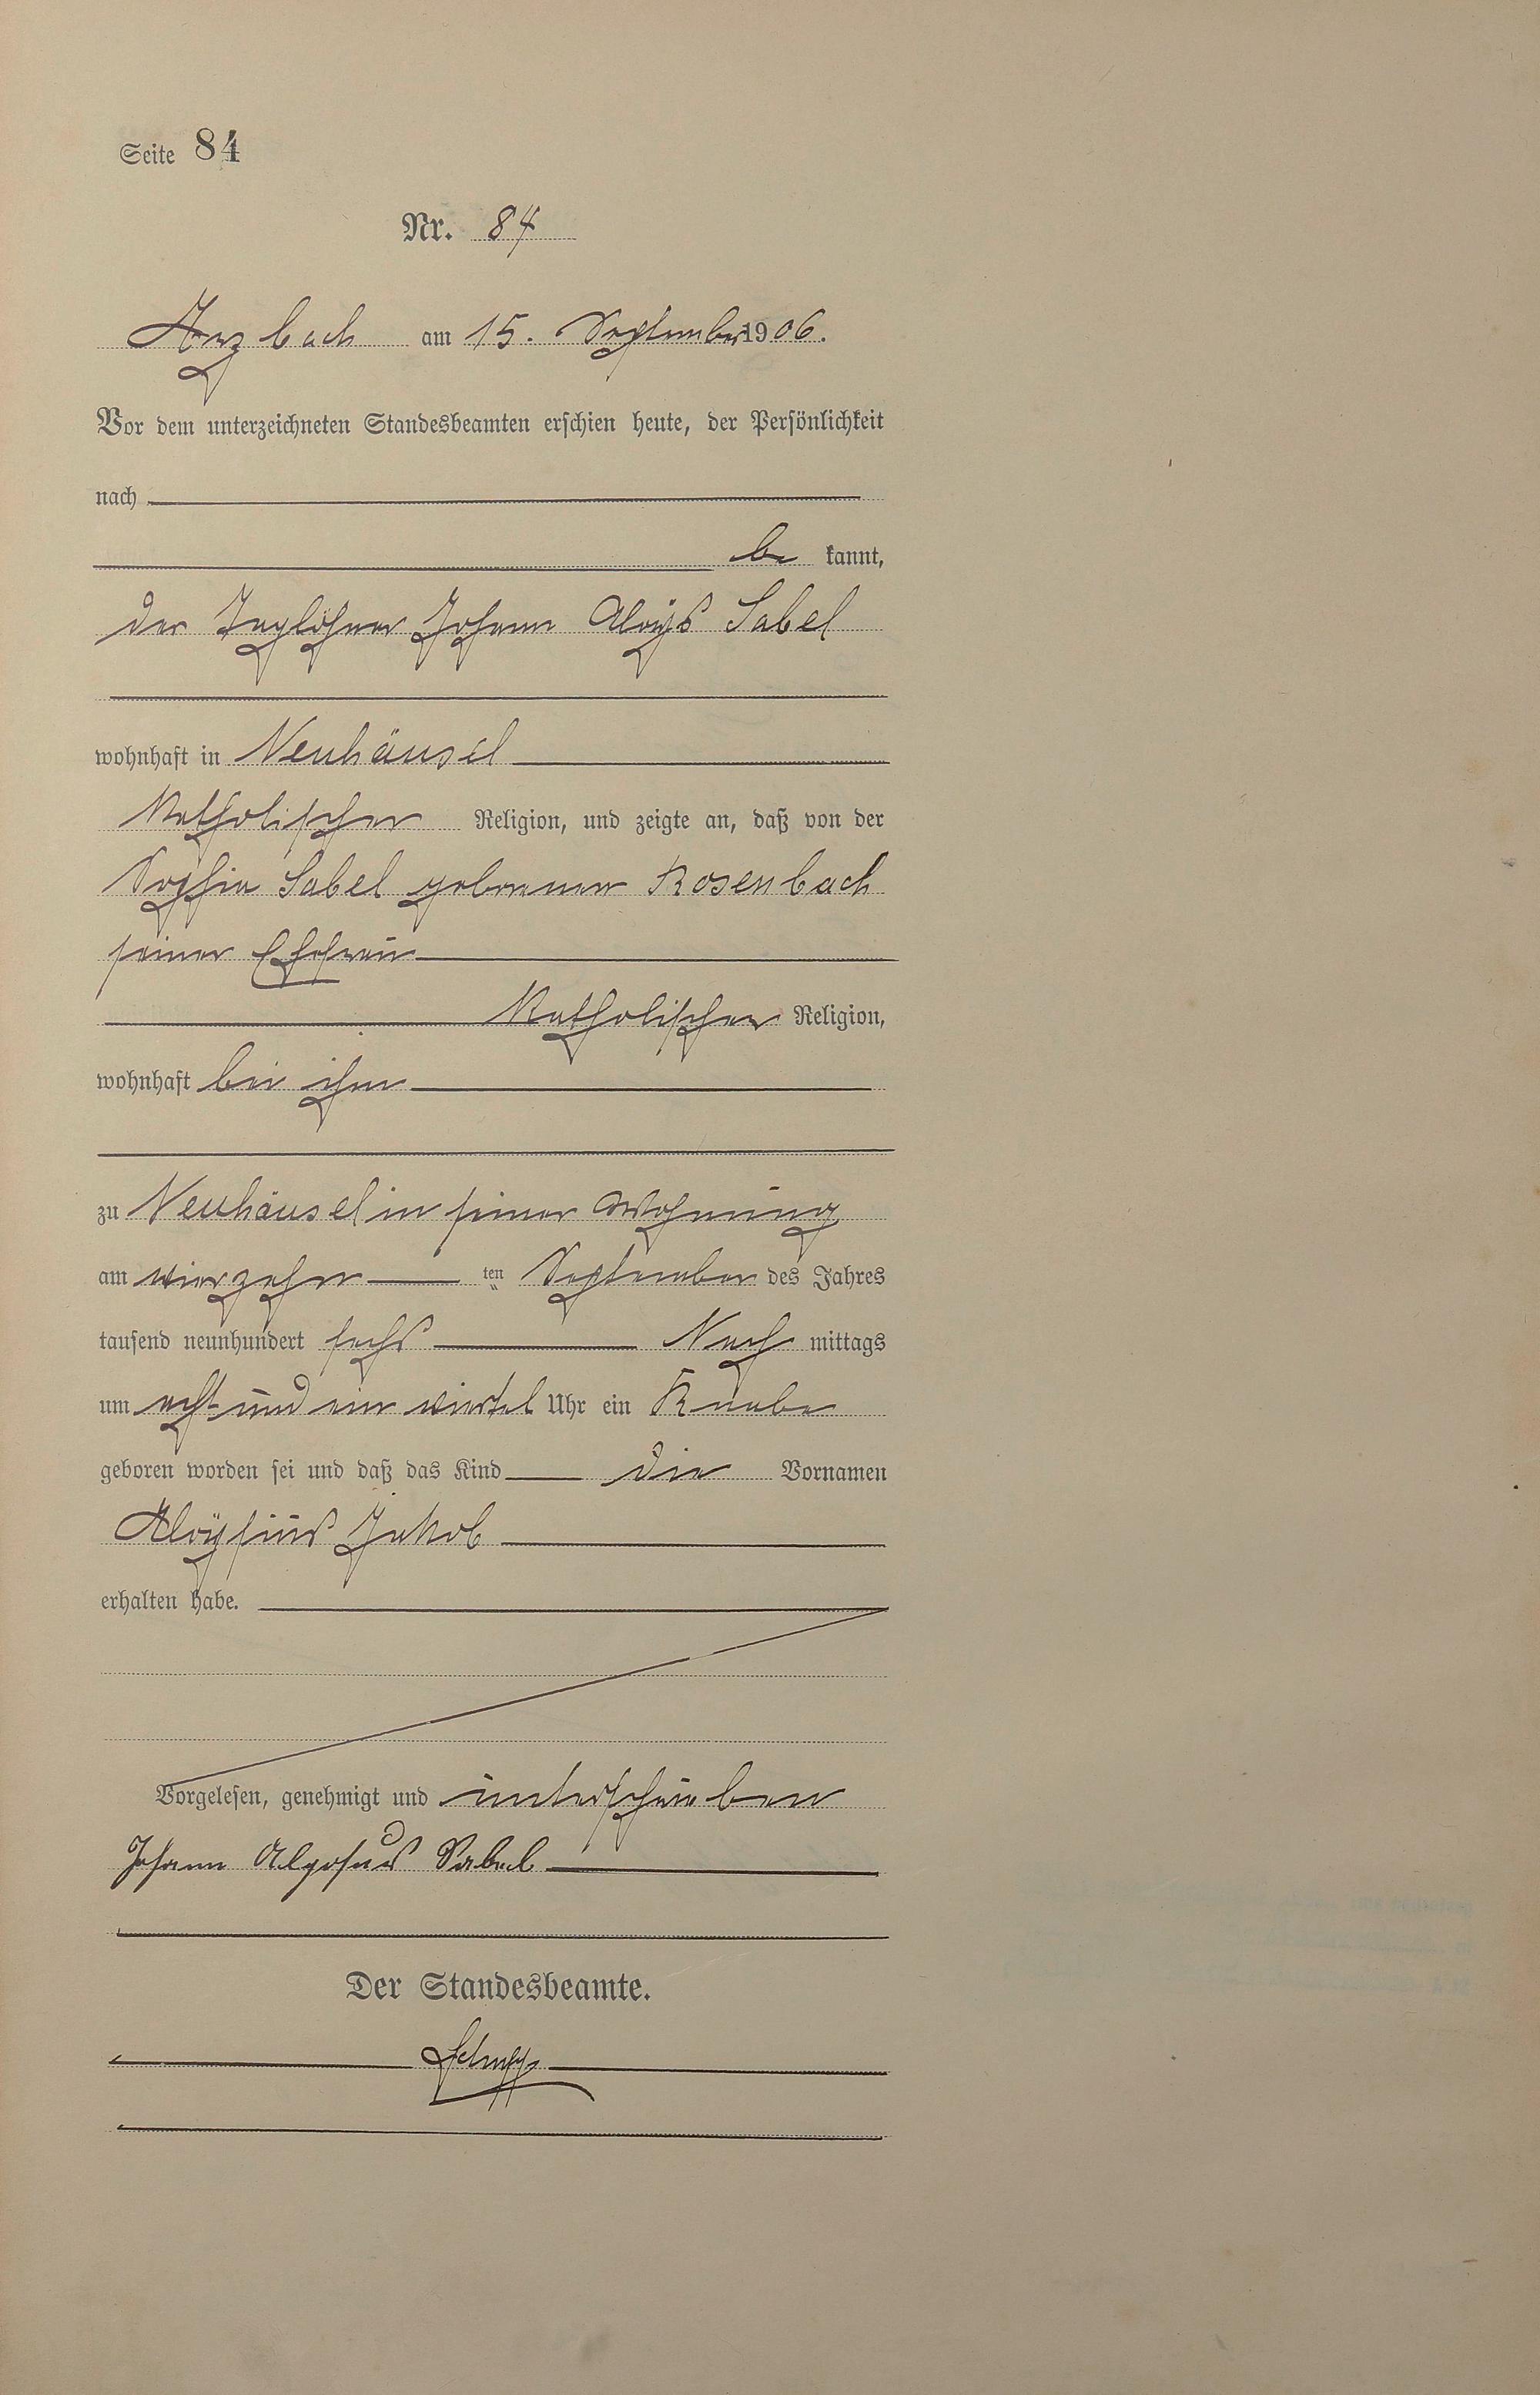 Seite 84
Nr. 84
Arzbach am 15. September 1906.
Vor dem unterzeichneten Standesbeamten erschien heute, der Persönlichkeit
nach
be kannt,
der Taglöhner Johann Aloys Sabel
wohnhaft in Neuhäusel
katholischer Religion, und zeigte an, daß von der
Sophia Sabel geborenen Rosenbach
seiner Ehefrau
katholischer Religion,
wohnhaft bei ihm
zu Neuhäusel in seiner Wohnung
am vierzehn ten September des Jahres
tausend neunhundert sechs Nach mittags
um acht und ein viertel Uhr ein Knabe
geboren worden sei und daß das Kind die Vornamen
Aloÿsius Jakob
erhalten habe.
Vorgelesen, genehmigt und unterschrieben
Johann Alyosius Sabel
Der Standesbeamte.